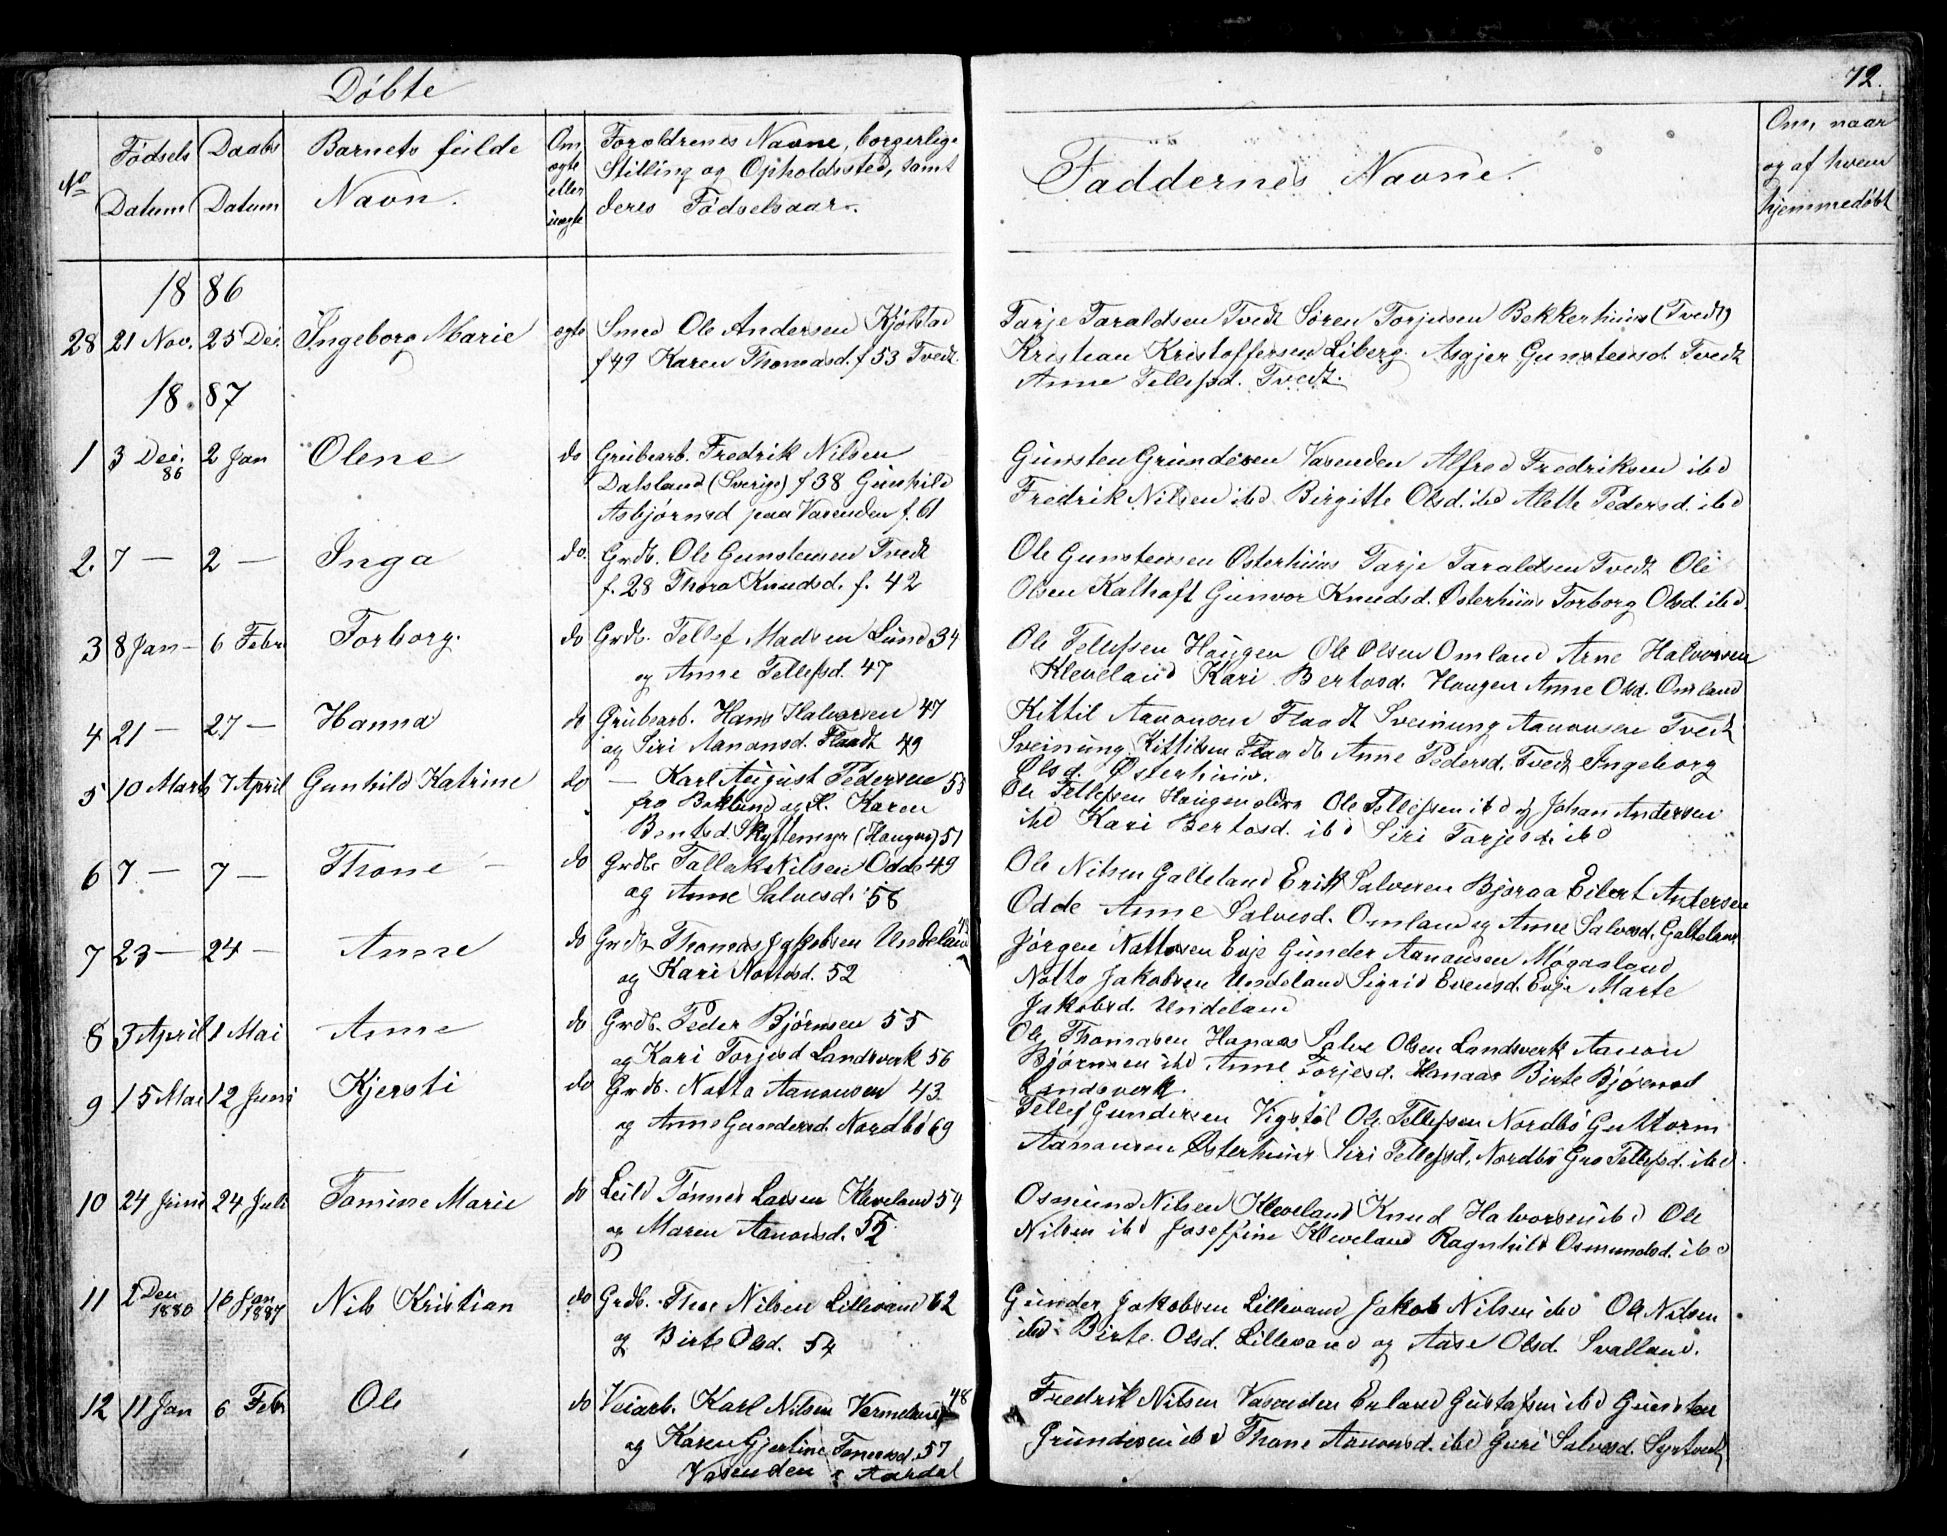 Döbte
72.
No
Fødsels Datum
Daabs Datum
Barnets fulde Navn.
Om ægte eller uægte
Foroldrenes Navne, borgerlige
Stilling og Opholdssted, samt
deres Fødselsaar.
Faddernes Navne.
Om, naar
og af hvem
hjemmedøbt
1886
28 21 Nov. 25 Dec. Ingeborg Marie ægte Smed Ole Andersen Kjølstad
f 49 Karen Thomasd. f 53 Tvedt
Tarje Taraldsen Tvedt Sören Torjusen Bekkerhuus (Tvedt)
Kristian Kristoffersen Liberg. Asgjer Gunstensd. Tvedt
Anne Tellefsd. Tvedt.
1887
1 3 Dec. 86 2 Jan Olene do Grubearb. Fredrik Nilsen
Dalsland (Sverige) f 38 Gunhild
Asbjornsd paa Vasenden f. 61
Gunsten Grundesen Vasenden Alfred Fredriksen ibd
Fredrik Nilsen ibd Birgitte Olsd. ibd Alette Pedersd. ibd
2. 7 — 2 — Inga do. Grdb. Ole Gunstensen Tvedt
f. 28 Thora Knudsd. f. 42
Ole Gunstensen Østerhuus Tarje Taraldsen Tvedt Ole
Olsen Kalhoft Gunvor Knudsd. Østerhuus Torborg Olsd. ibd.
3 8 Jan — 6 Febr Torborg. do Grdb. Tellef Madsen Lund 34
og Anne Tellefsd. 47
Ole Tellefsen Haugen Ole Olsen Omland Arne Halvorsen
Kleveland Kari Bertosd. Haugen Anne Olsd. Omland
4 21 — 27 — Hanna do Grubearb. Hans Halvorsen 47
og Siri Aanonsd. Flaadt 49
Kittil Aanonsen Flaadt Sveinung Aanonsen Tvedt
Sveinung Kittilsen Flaadt Anne Pedersd. Tvedt Ingeborg
Olsd. Østerhuus.
5 10 Marts 7 April Gunhild Katrine do — Karl August Pedersen 53
fra Beklund og H. Karen
Bentsd Skyttemyr (Haugen) 51
Ole Tellefsen Haugen Ole Tellefsen ibd og Johan Andersen
ibd Kari Bertosd. ibd Siri Tarjesd. ibd
6 7 — 7 — Thone — do Grdb. Tallak Nilsen Odde 49
og Anne Salvesd. 58
Ole Nilsen Galteland Erik Salvesen Bjoraa Eilert Andersen
Odde Anne Salvesd. Omland og Anne Salvesd. Galteland
7 23 — 24 — Anne do Grdb Thomas Jakobsen Undeland
og Kari Nottosd. 52
Jørgen Nottosen Evje Gunder Aanonsen Møgasland
Notto Jakobsen Undeland Sigrid Evensd. Evje Marte
Jakobsd. Undeland
8 3 April 1 Mai Anne do Grdb. Peder Bjørnsen 55
og Kari Torjesd Landsverk 56
Ole Thomasen Hanaas Salve Olsen Landsverk Aanon
Bjørnsen ibd Anne Torjesd. Hanaas Birte Bjørnsd
Landsverk.
9 15 Mai 12 Juni Kjersti do Grdb. Notto Aanonsen 43
og Anne Gundersd. Nordbö 69
Tellef Gundersen Vigstøl Ole Tellefsen Nordbö Guttorm
Aanonsen Østerhuus Siri Tellefsd. Nordbö Gro Tellefsd. ibd.
10 24 Juni 24 Juli Tomine Marie do Leild Tönnes Larsen Kleveland 54
og Maren Aanonsd. 52
Osmund Nilsen Kleveland Knud Halvorsen ibd Ole
Nilsen ibd Joseffine Kleveland Ragnhild Osmundsd. ibd
11 2 Den 1880 16 Jan 1887 Nils Kristian do Grdb. Thor Nilsen Lillevand 62
og Birte Olsd. 54
Gunder Jakobsen Lillevand Jakob Nilsen ibd Ole Nilsen
ibd Birte Olsd. Lillevand og Aase Olsd. Svalland.
12 11 Jan 6 Febr Ole do Veiarb. Karl Nilsen Vermeland 48
og Karen Gjertine Tomesd. 57
Vasenden i Aardal
Fredrik Nilsen Vasenden Erland Gustafsen ibd Gunsten
Grundesen ibd Thone Aanonsd. ibd Guri Salvesd. Syrtveit